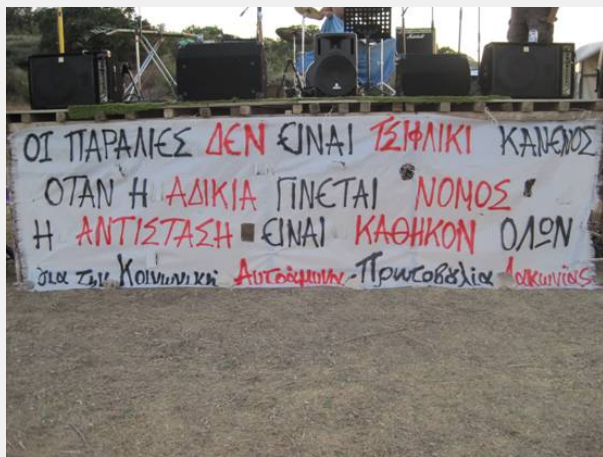 ΟΙ ΠΑΡΑΛΙΕΣ ΔΕΝ ΕΙΝΑΙ ΤΣΙΦΛΙΚΙ ΚΑΝΕΝΟΣ
ΟΤΑΝ Η ΑΔΙΚΙΑ ΓΙΝΕΤΑΙ ΝΟΜΟΣ
Η ΑΝΤΙΣΤΑΣΗ ΕΙΝΑΙ ΚΑΘΗΚΟΝ ΟΛΩΝ
για την Κοινωνική Αυτοάμυνα-Πρωτοβουλία Λακωνίας